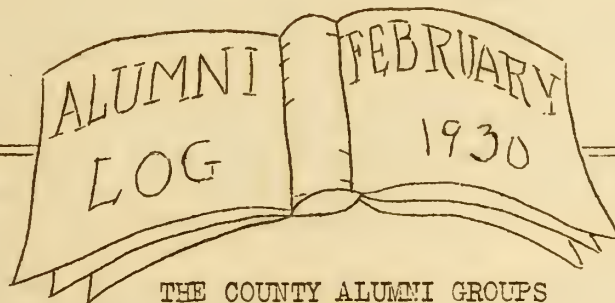 ALUMNI
LOG
FEBRUARY
1930
THE COUNTY ALUMNI GROUPS